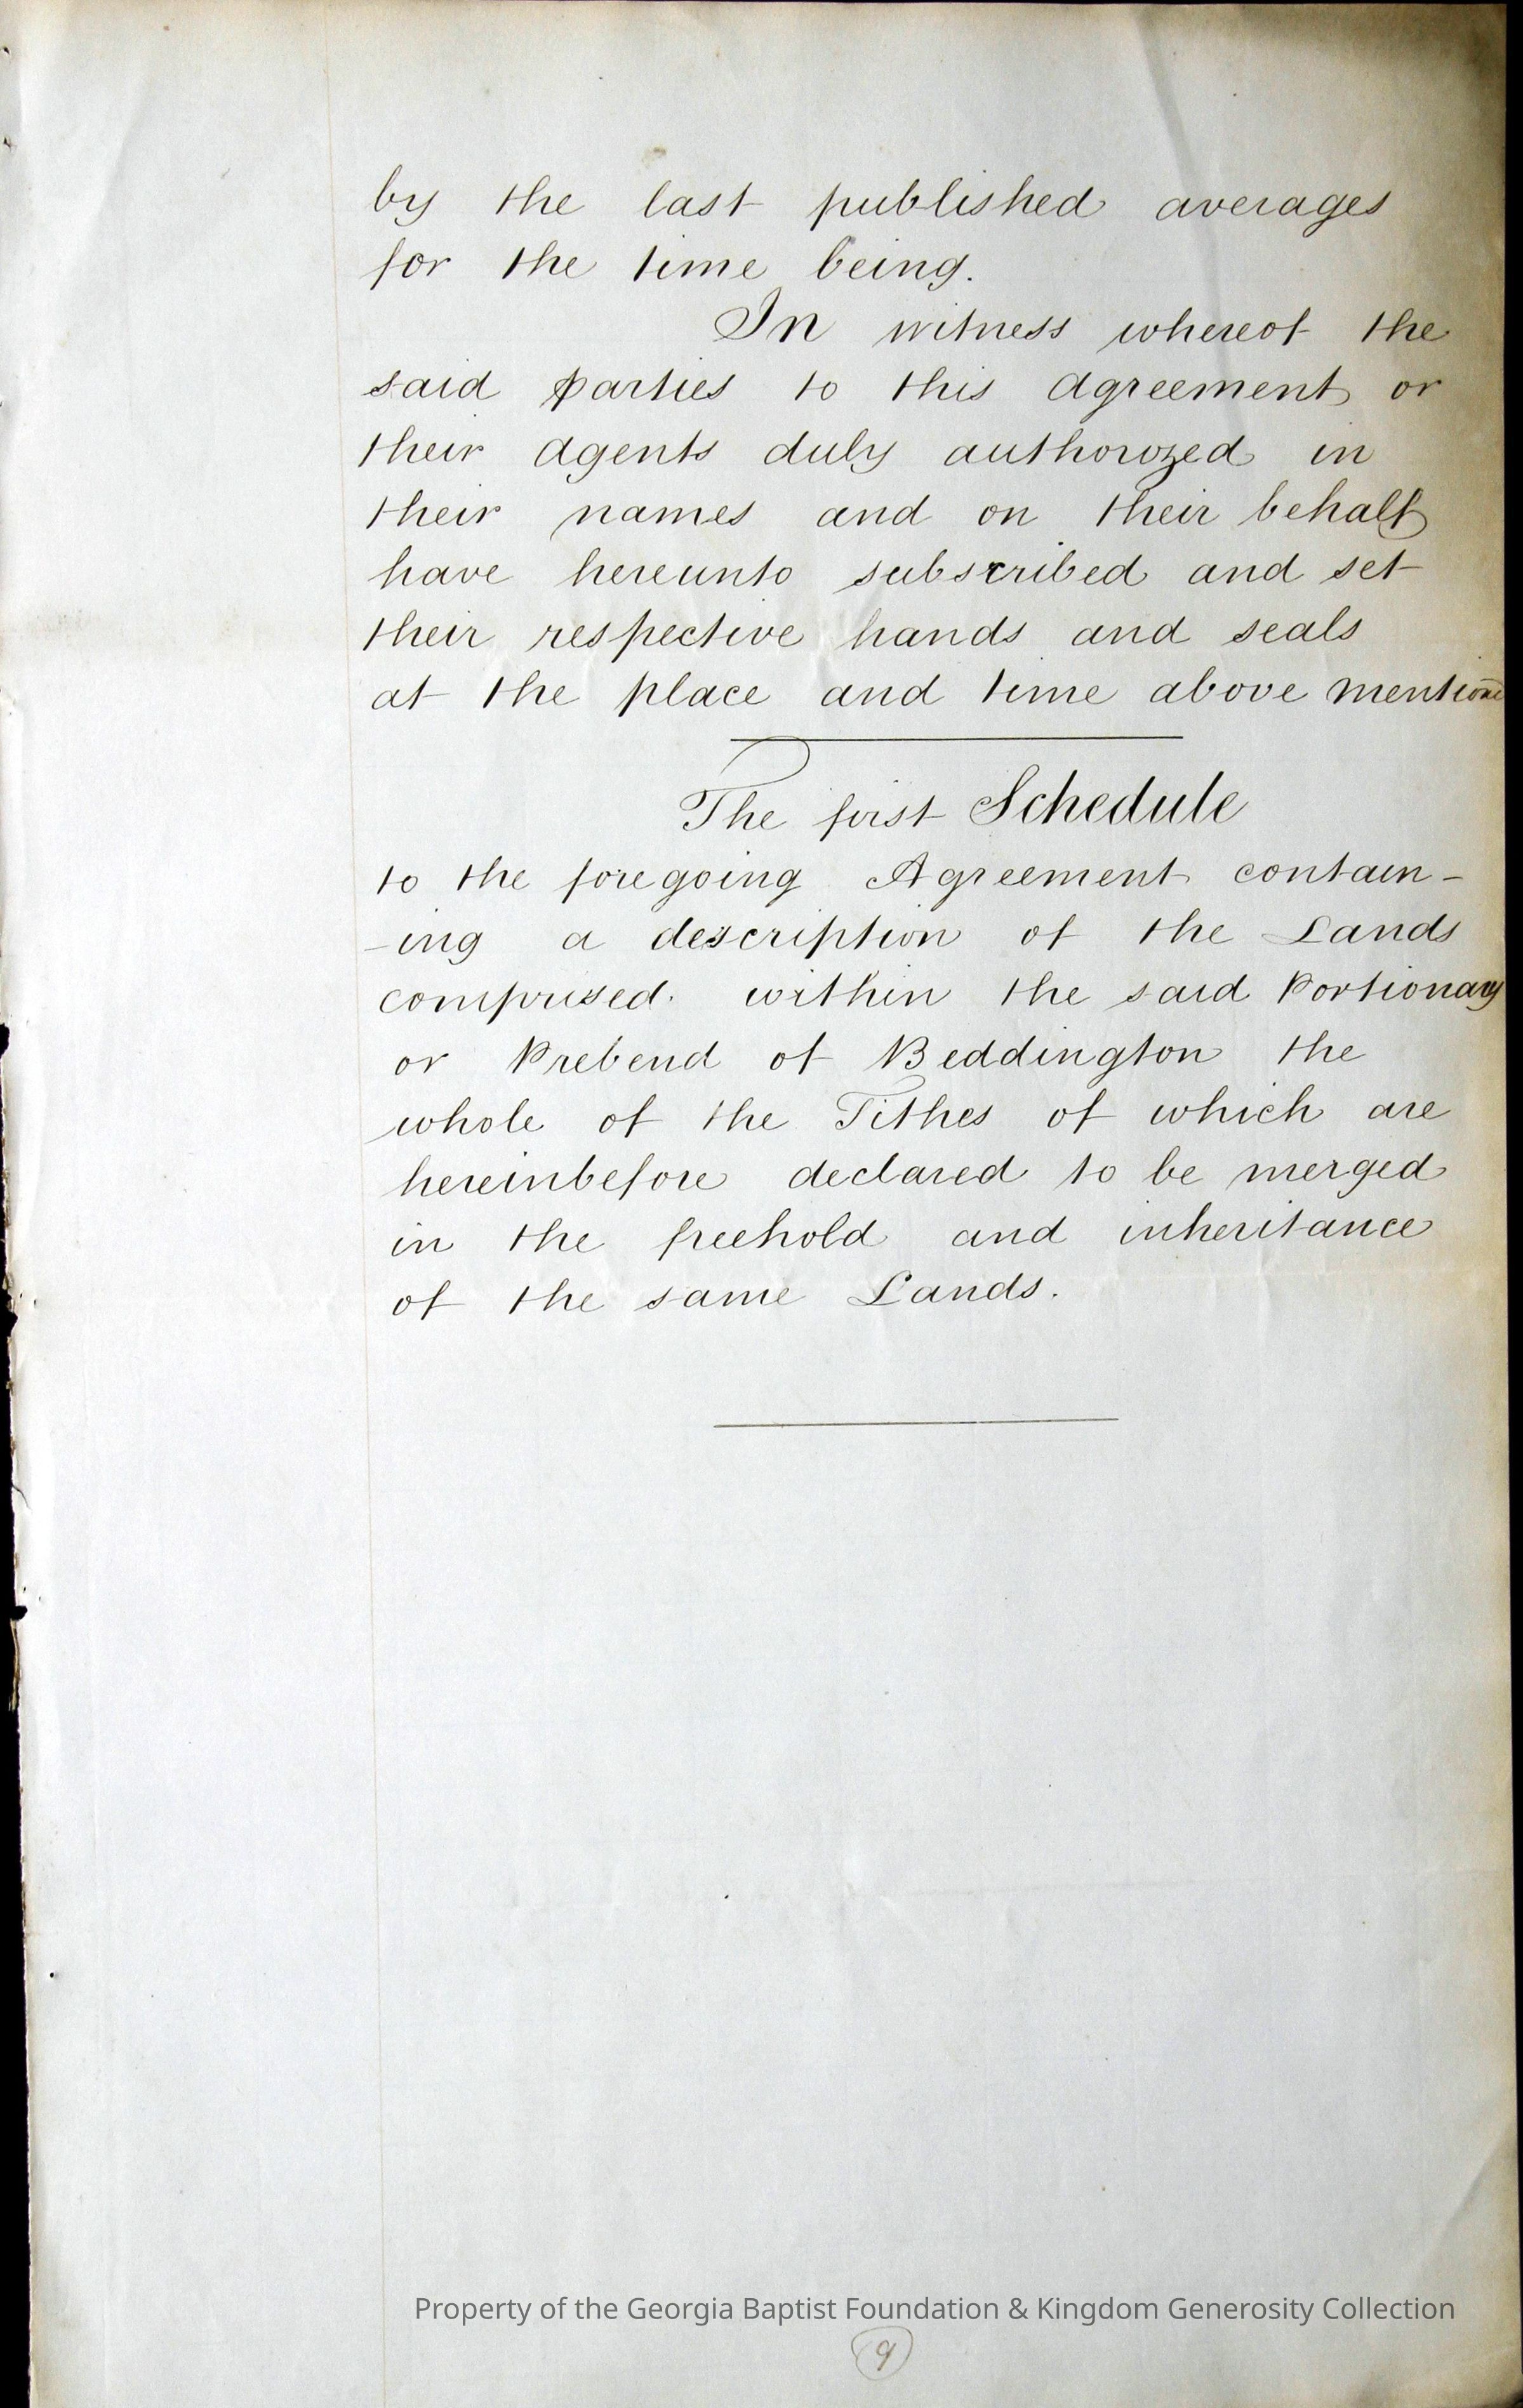 by the last published averages
for the time being.
In witness whereof the
said parties to this Agreement or
their Agents duly authorized in
their names and on their behalf
have hereunto subscribed and set
their respective hands and seals
at the place and time above mentioned
The first Schedule
to the foregoing Agreement contain-
-ing a description of the Lands
comprised within the said Portionary
or Prebend of Beddington the
whole of the Tithes of which are
hereinbefore declared to be merged
in the freehold and inheritance
of the same Lands.
Property of the Georgia Baptist Foundation & Kingdom Generosity Collection
9